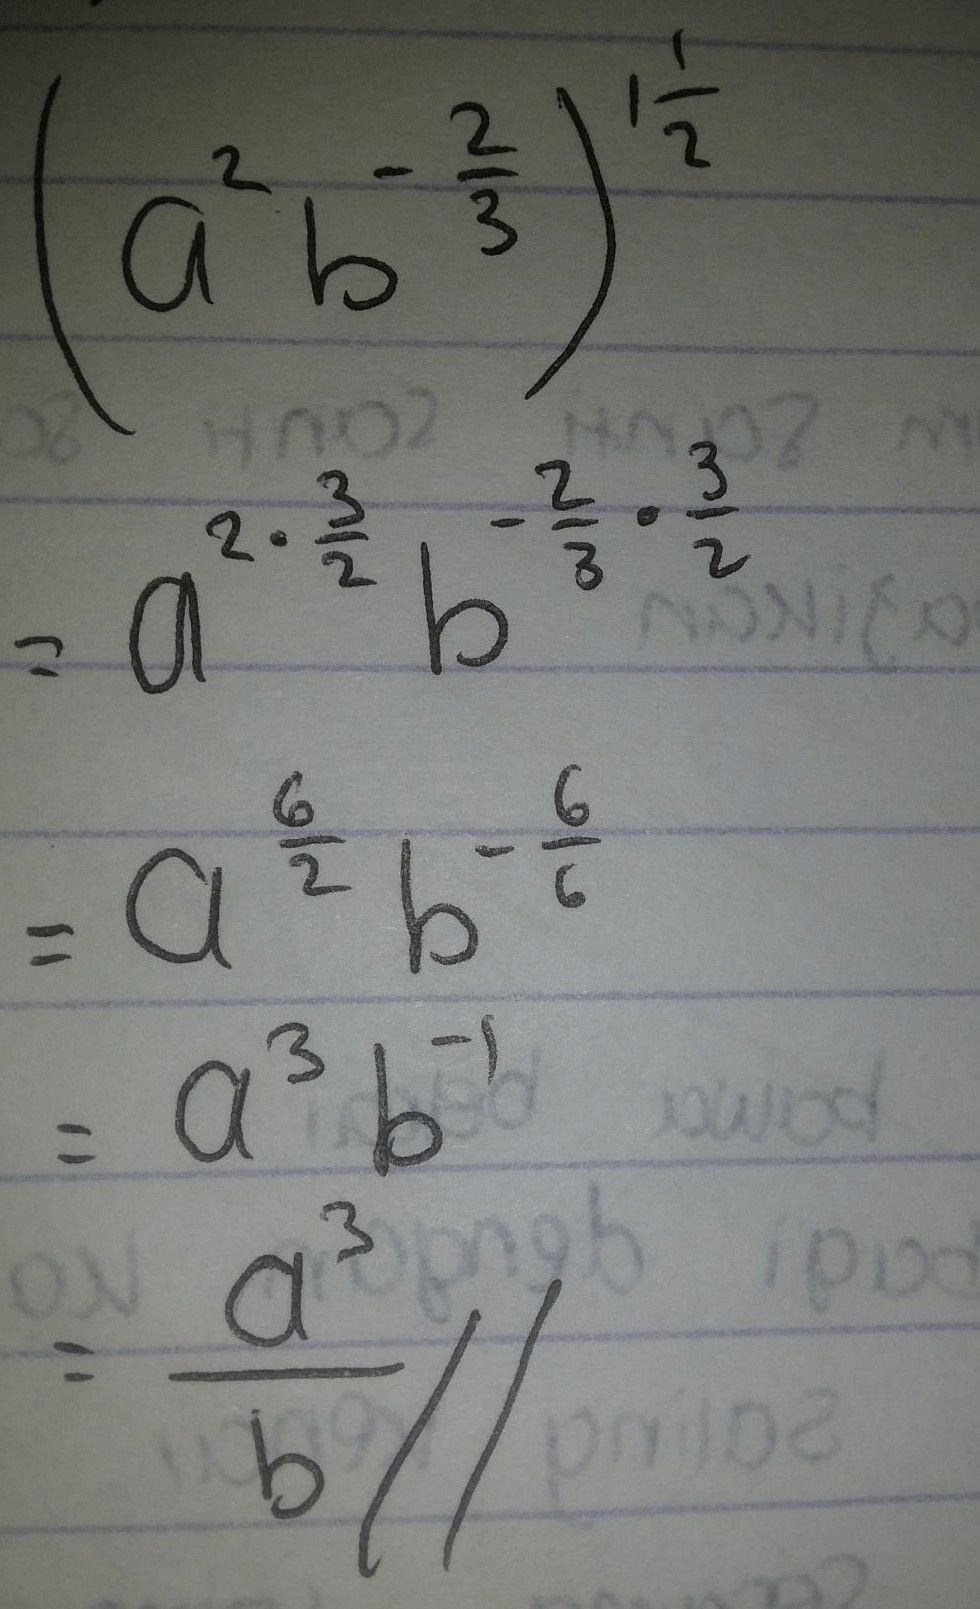 (a² b^{-2/3})^{1 1/2}
= a^{2 · 3/2} b^{-2/3 · 3/2}
= a^{6/2} b^{-6/6}
= a³ b^{-1}
= a³/b //